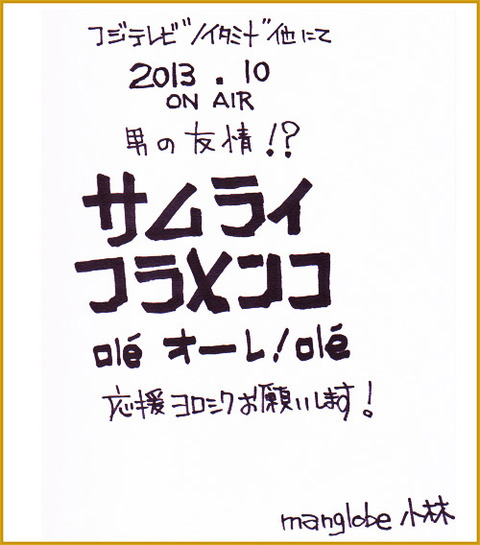 フジテレビ"ノイタミナ"他にて
2013.10
ON AIR
男の友情!?
サムライ
フラメンコ
olé オーレ!olé
応援ヨロシクお願いします!
manglobe 小林